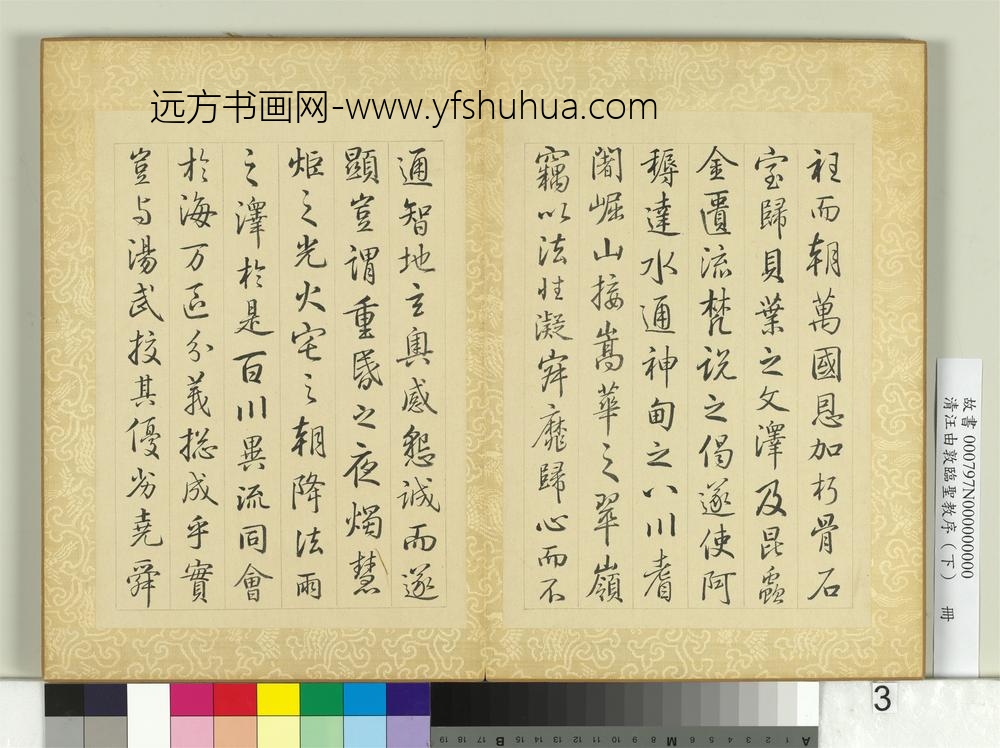 远方书画网-www.yfshuhua.com
衽而朝萬國恩加朽骨石
室歸貝葉之文澤及昆蟲
金匱流梵說之偈遂使阿
耨達水通神甸之八川耆
闍崛山接嵩華之翠嶺
竊以法性凝寂靡歸心而不
通智地玄奧感懇誠而遂
顯豈謂重昏之夜燭慧
炬之光火宅之朝降法雨
之澤於是百川異流同會
於海万區分義摠成乎實
豈与湯武校其優劣堯舜
故書 000797N000000000
清汪由敦臨聖教序（下） 冊
3
A 1 2 3 4 5 6 7 M 8 9 10 11 12 13 14 15 B 16 17 18 19